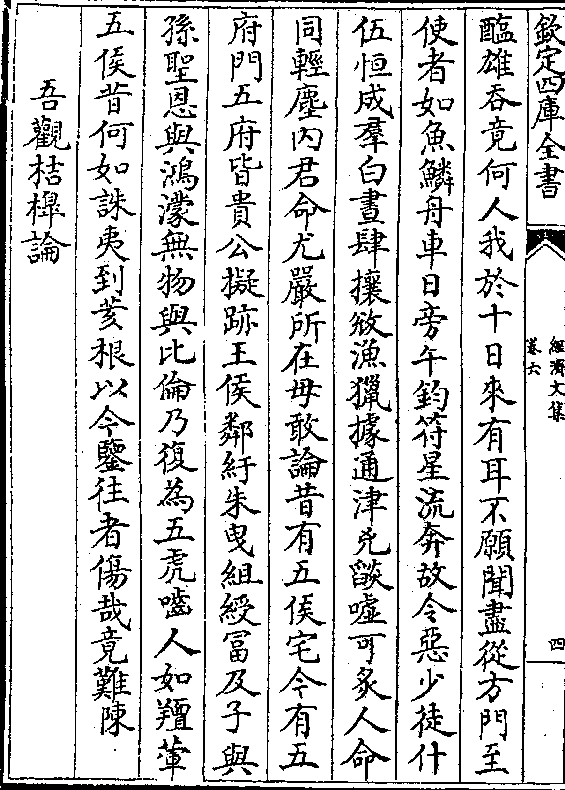 欽定四庫全書
經濟文集
卷六
四
醢雄吞竟何人我於十日來有耳不願聞盡從方門至
使者如魚鱗舟車日旁午鈞符星流奔故令惡少徒什
伍恒成羣白晝肆攘斂漁獵據通津兇燄噓可炙人命
同輕塵内君命尤嚴所在毋敢論昔有五侯宅今有五
府門五府皆貴公擬跡王侯鄰紆朱曳組綬冨及子與
孫聖恩與鴻濛無物與比倫乃復為五虎嚙人如羶葷
五侯昔何如誅夷到荄根以今鑒徃者傷哉竟難陳
吾觀桔橰論